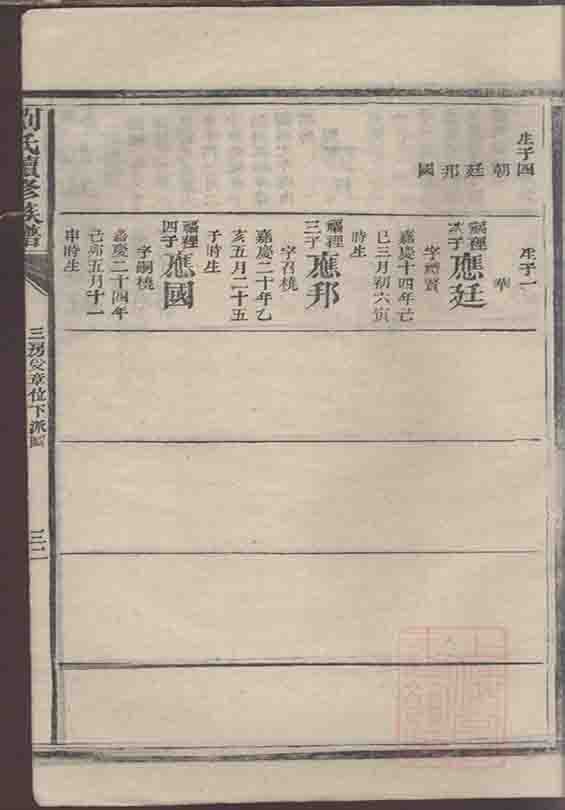 生子四
朝
廷
邦
國
生子一
華
福裡
次子
應廷
字禮賢
嘉慶十四年己
巳三月初六寅
時生
福裡
三子
應邦
字召棪
嘉慶二十年乙
亥五月二十五
子時生
福裡
四子
應國
字嗣棪
嘉慶二十四年
己卯五月十一
申時生
劉氏續修族譜
三房
章位下派
三二